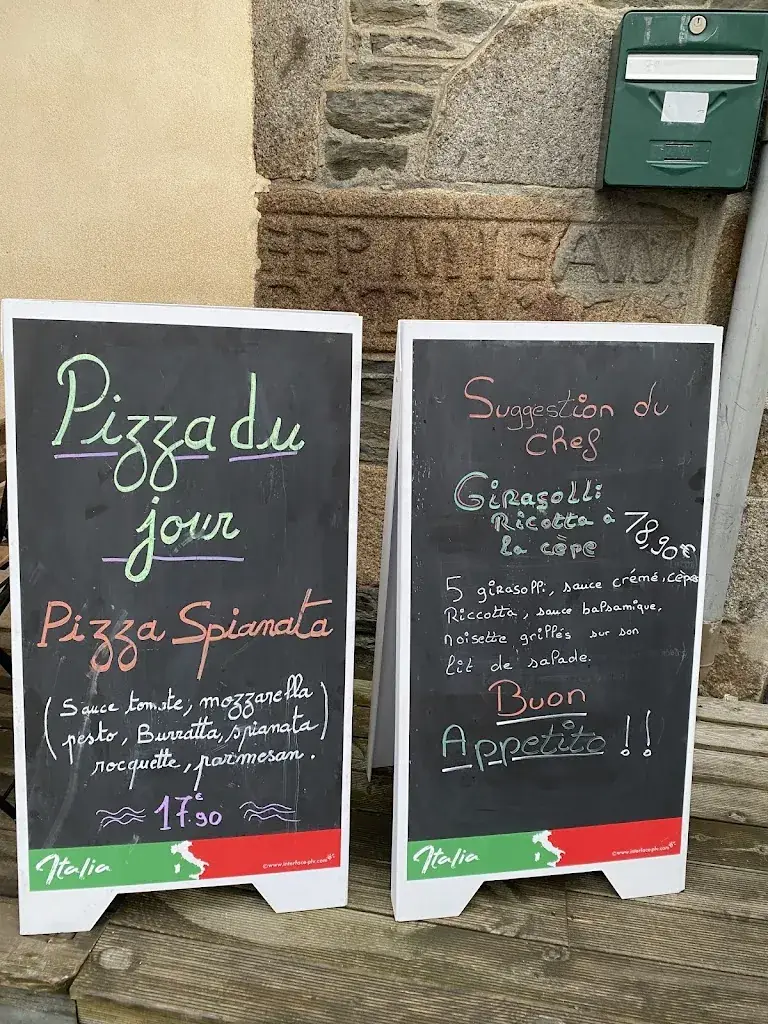 Pizza du
jour
Pizza Spianata
(Sauce tomate, mozzarella
pesto, Burratta, spianata)
rocquette, parmesan.
17€90
Italia
©www.interface-plv.com
Suggestion du
chef
Girasolli
Ricotta à
la cèpe
18,90€
5 girasolli, sauce crémé, cèpes
Riccotta, sauce balsamique,
noisette grillés sur son
lit de salade.
Buon
Appetito !!
Italia
©www.interface-plv.com